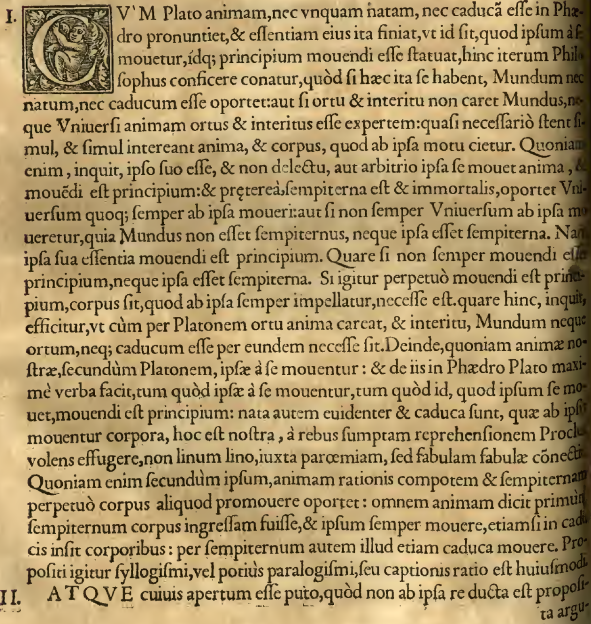 I. CV'M Plato animam, nec vnquam natam, nec caducā esse in Phæ-
dro pronuntiet, & essentiam eius ita finiat, vt id sit, quod ipsum à se
mouetur, idq; principium mouendi esse statuat, hinc iterum Philo
sophus conficere conatur, quòd si hæc ita se habent, Mundum nec
natum, nec caducum esse oportet: aut si ortu & interitu non caret Mundus, ne-
que Vniuersi animam ortus & interitus esse expertem: quasi necessariò stent si-
mul, & simul intereant anima, & corpus, quod ab ipsa motu cietur. Quoniam
enim, inquit, ipso suo esse, & non delectu, aut arbitrio ipsa se mouet anima, &
mouēdi est principium: & prętereà, sempiterna est & immortalis, oportet Vni-
uersum quoq; semper ab ipsa moueri: aut si non semper Vniuersum ab ipsa mo
ueretur, quia Mundus non esset sempiternus, neque ipsa esset sempiterna. Nam
ipsa sua essentia mouendi est principium. Quare si non semper mouendi esset
principium, neque ipsa esset sempiterna. Si igitur perpetuò mouendi est princi-
pium, corpus sit, quod ab ipsa semper impellatur, necesse est. quare hinc, inquit,
efficitur, vt cùm per Platonem ortu anima careat, & interitu, Mundum neque
ortum, neq; caducum esse per eundem necesse sit. Deinde, quoniam animæ no-
stræ, secundùm Platonem, ipsæ à se mouentur: & de iis in Phædro Plato maxi-
mè verba facit, tum quòd ipsæ à se mouentur, tum quòd id, quod ipsum se mo-
uet, mouendi est principium: nata autem euidenter & caduca sunt, quæ ab ipsis
mouentur corpora, hoc est nostra, à rebus sumptam reprehensionem Proclus
volens effugere, non linum lino, iuxta parœmiam, sed fabulam fabulæ cōnectit.
Quoniam enim secundùm ipsum, animam rationis compotem & sempiternam
perpetuò corpus aliquod promouere oportet: omnem animam dicit primùm
sempiternum corpus ingressam fuisse, & ipsum semper mouere, etiamsi in cadu
cis insit corporibus: per sempiternum autem illud etiam caduca mouere. Pro-
positi igitur syllogismi, vel potiùs paralogismi, seu captionis ratio est huiusmodi.
II. ATQVE cuiuis apertum esse puto, quòd non ab ipsa re ducta est proposi-
ta argu-